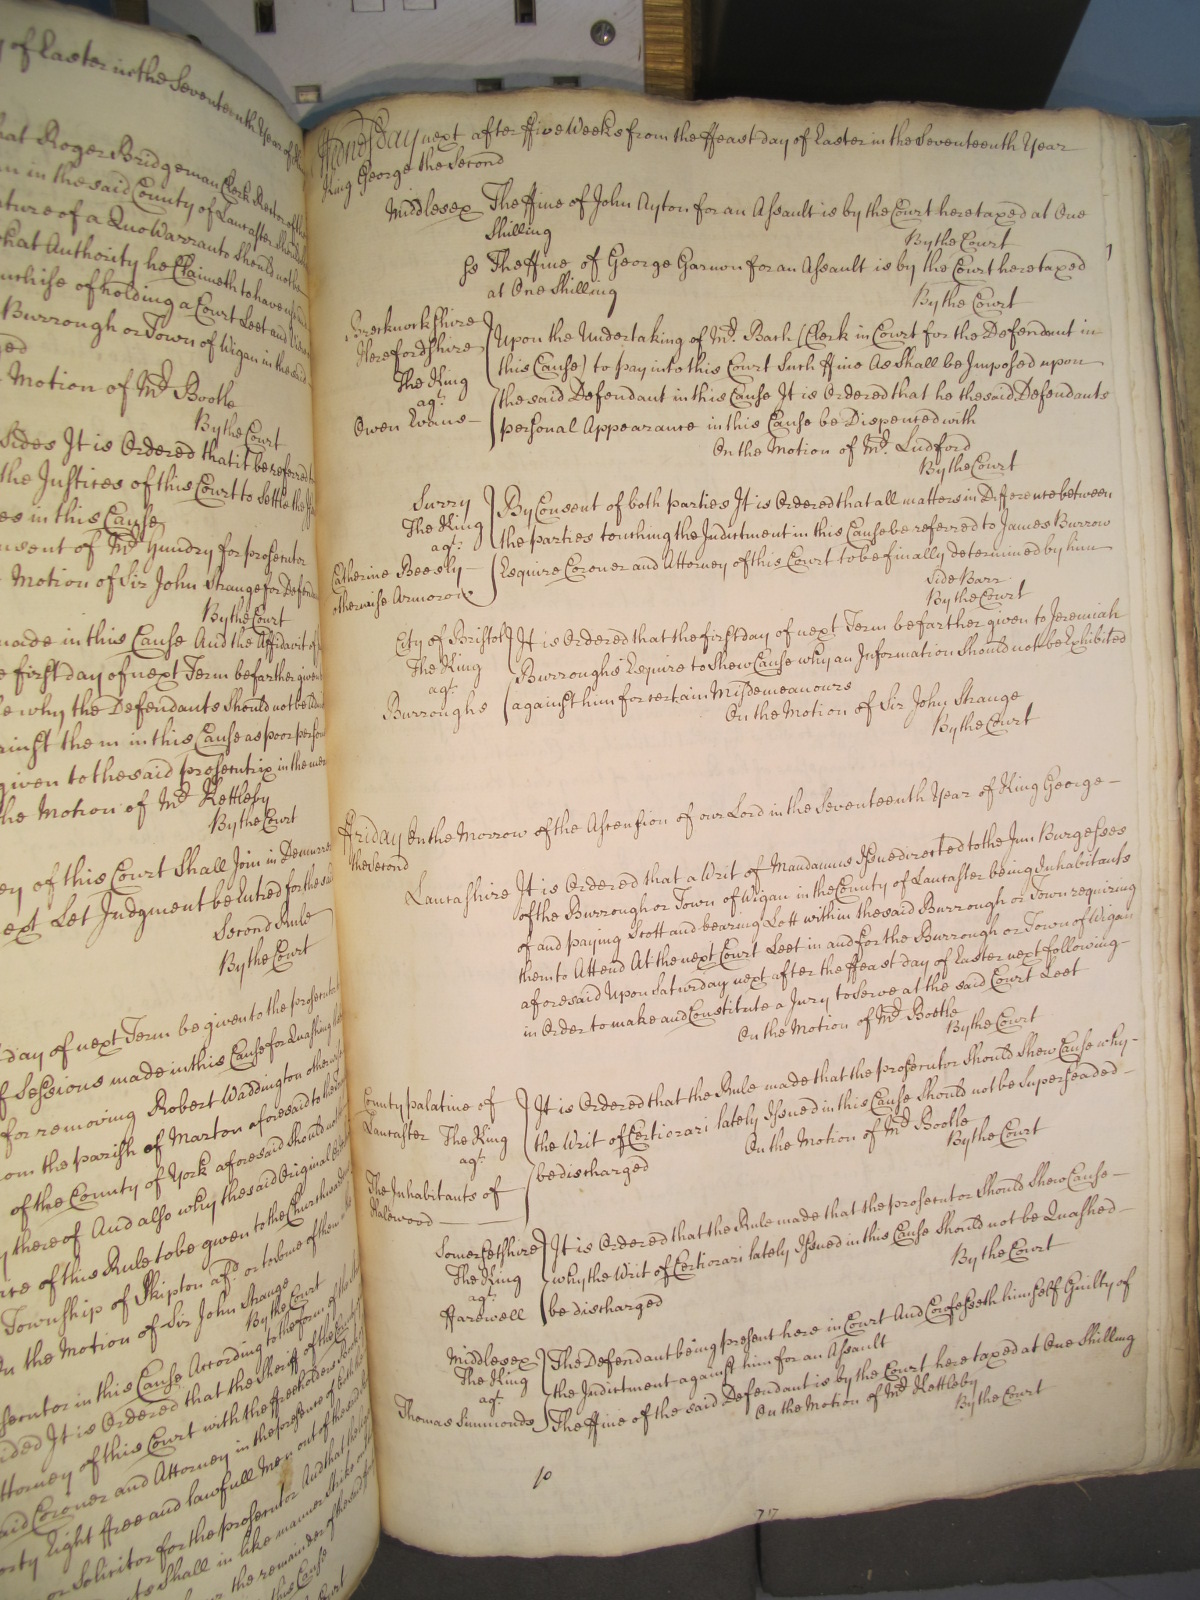 of Easter in the Seventeenth Year of
that Roger Bridgeman Clerk Rector of the
in the said County of Lancaster should
nature of a Quo Warranto should not be
what Authority he Claimeth to have
Franchise of holding a Court Leet and
Burrough or Town of Wigan in the said
Motion of Mr. Bootle
By the Court
Sides It is Ordered that it be referred
the Justices of this Court to settle the
in this Cause
Consent of Mr. Gundry for prosecutor
Motion of Sir John Strange for Defend
By the Court
made in this Cause And the Affidavit of
first day of next Term be farther given
why the Defendants should not be
against them in this Cause as poor person
given to the said prosecutrix in the
the Motion of Mr. Kettleby
By the Court
of this Court Shall Join in Demurrer
next Let Judgment be Entred for the
Second Rule
By the Court
day of next Term be given to the prosecutor
of Sessions made in this Cause for Quashing
for removing Robert Waddington otherwise
from the parish of Marton aforesaid to the
of the County of York aforesaid should not
thereof And also why the said Original
of this Rule to be given to the Churchwardens
Township of Skipton afd. or to some of them
On the Motion of Sir John Strange
By the Court
prosecutor in this Cause According to the form of the
It is Ordered that the Sheriff of the County
Attorney of this Court with the ffreeholders
said Coroner and Attorney in the presence of
forty Eight ffree and lawfull Men out of the
or Solicitor for the prosecutor And that the
Shall in like manner Strike
the remainder of the said
this Cause
Court
Wednesday next after ffive Weeks from the ffeast day of Easter in the Seventeenth Year
King George the Second
Middlesex The ffine of John Ayton for an Assault is by the Court here taxed at One
Shilling
By the Court
ss The ffine of George Garmon for an Assault is by the Court here taxed
at One Shilling
By the Court
Brecknockshire
Herefordshire
The King
agt.
Owen Evans
Upon the Undertaking of Mr. Bach (Clerk in Court for the Defendant in
this Cause) to pay into this Court Such ffine As Shall be Imposed upon
the said Defendant in this Cause It is Ordered that he the said Defendants
personal Appearance in this Cause be Dispenced with
On the Motion of Mr. Ludford
By the Court
Surry
The King
agt.
Catherine Beesly
otherwise Armorow
By Consent of both parties It is Ordered that all matters in Difference between
the parties touching the Indictment in this Cause be referred to James Burrow
Esquire Coroner and Attorney of this Court to be finally determined by him
Side Barr
By the Court
City of Bristol
The King
agt.
Burroughs
It is Ordered that the first day of next Term be farther given to Jeremiah
Burroughs Esquire to Shew Cause why an Information Should not be Exhibited
against him for certain Misdemeanours
On the Motion of Sir John Strange
By the Court
ffriday On the Morrow of the Ascension of our Lord in the Seventeenth Year of King George
the Second
Lancashire It is Ordered that a Writ of Mandamus Issue directed to the Inn Burgesses
of the Burrough or Town of Wigan in the County of Lancaster being Inhabitants
of and paying Scott and bearing Lott within the said Burrough or Town requiring
them to Attend At the next Court Leet in and for the Burrough or Town of Wigan
aforesaid Upon Saturday next after the ffeast day of Easter next following
in Order to make and Constitute a Jury to Serve at the said Court Leet
On the Motion of Mr. Bootle
By the Court
County palatine of
Lancaster The King
agt.
The Inhabitants of
Halewood
It is Ordered that the Rule made that the prosecutor Should Shew Cause why
the Writ of Certiorari lately Issued in this Cause Should not be Superseaded
be discharged
On the Motion of Mr. Bootle
By the Court
Somersetshire
The King
agt.
ffarewell
It is Ordered that the Rule made that the prosecutor Should Shew Cause
why the Writ of Certiorari lately Issued in this Cause Should not be Quashed
be discharged
By the Court
Middlesex
The King
agt.
Thomas Simmonds
The Defendant being present here in Court And Confesseth himself Guilty of
the Indictment against him for an Assault
The ffine of the said Defendant is by the Court here taxed at One Shilling
On the Motion of Mr. Kettleby
By the Court
10